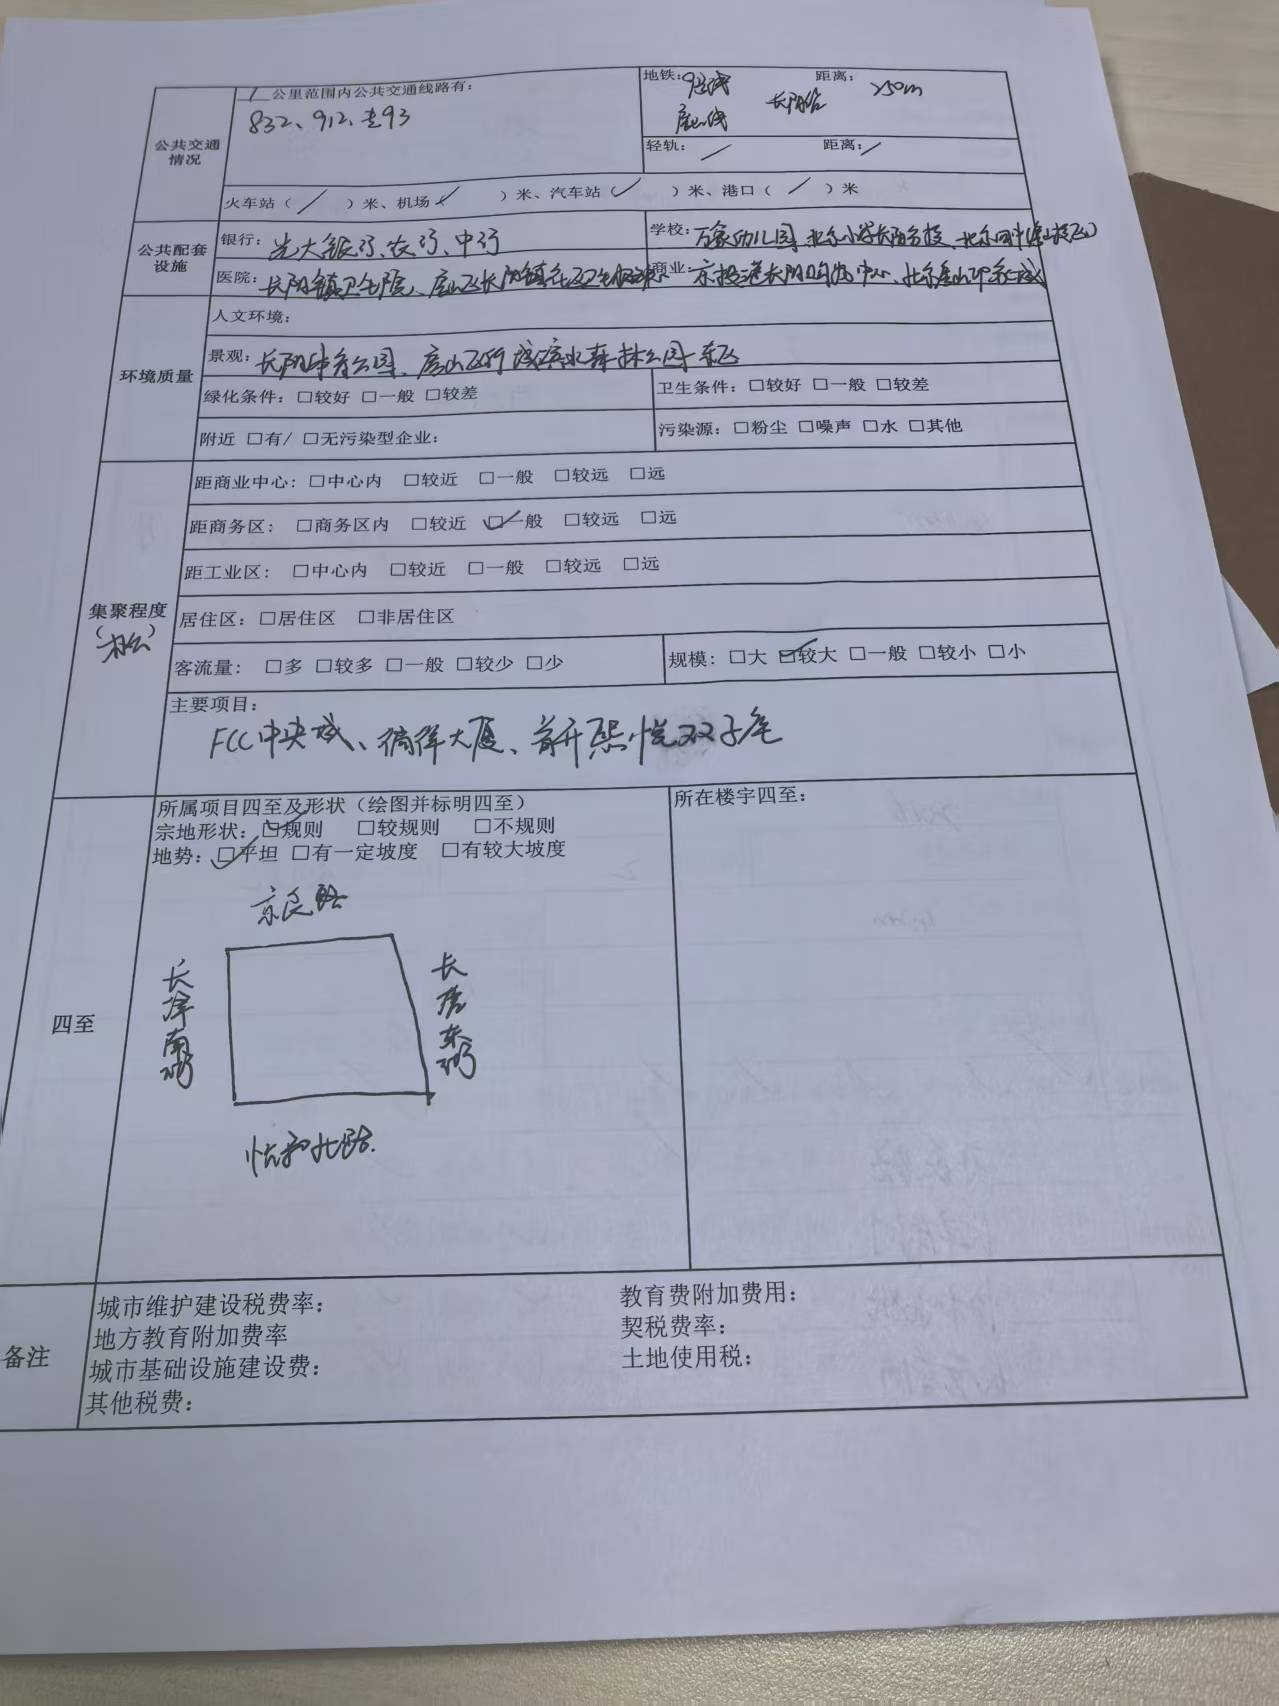 1 公里范围内公共交通线路有：
832、912、专93
地铁： 距离：
房山线 长阳站 750m
轻轨：／ 距离：／
公共交通情况
火车站（／）米、机场（／）米、汽车站（／）米、港口（／）米
公共配套设施
银行：光大银行、农行、中行
学校：万象幼儿园、北京小学长阳分校、北京四中(房山校区)
医院：长阳镇卫生院、房山区长阳镇社区卫生服务
商业：京投港长阳购物中心、北京房山
人文环境：
环境质量
景观：长阳体育公园、房山区 滨水森林公园-东区
绿化条件：□较好 □一般 □较差
卫生条件：□较好 □一般 □较差
附近 □有/ □无污染型企业：
污染源：□粉尘 □噪声 □水 □其他
距商业中心：□中心内 □较近 □一般 □较远 □远
距商务区：□商务区内 □较近 ☑一般 □较远 □远
距工业区：□中心内 □较近 □一般 □较远 □远
集聚程度
（办公）
居住区：□居住区 □非居住区
客流量：□多 □较多 □一般 □较少 □少
规模：□大 ☑较大 □一般 □较小 □小
主要项目：
FCC中央城、徜徉大厦、首开熙悦双子座
所属项目四至及形状（绘图并标明四至）
宗地形状：☑规则 □较规则 □不规则
地势：☑平坦 □有一定坡度 □有较大坡度
所在楼宇四至：
京良路
长泽南街
长 东街
四至
悦和北路
备注
城市维护建设税费率：
教育费附加费用：
地方教育附加费率
契税费率：
城市基础设施建设费：
土地使用税：
其他税费：